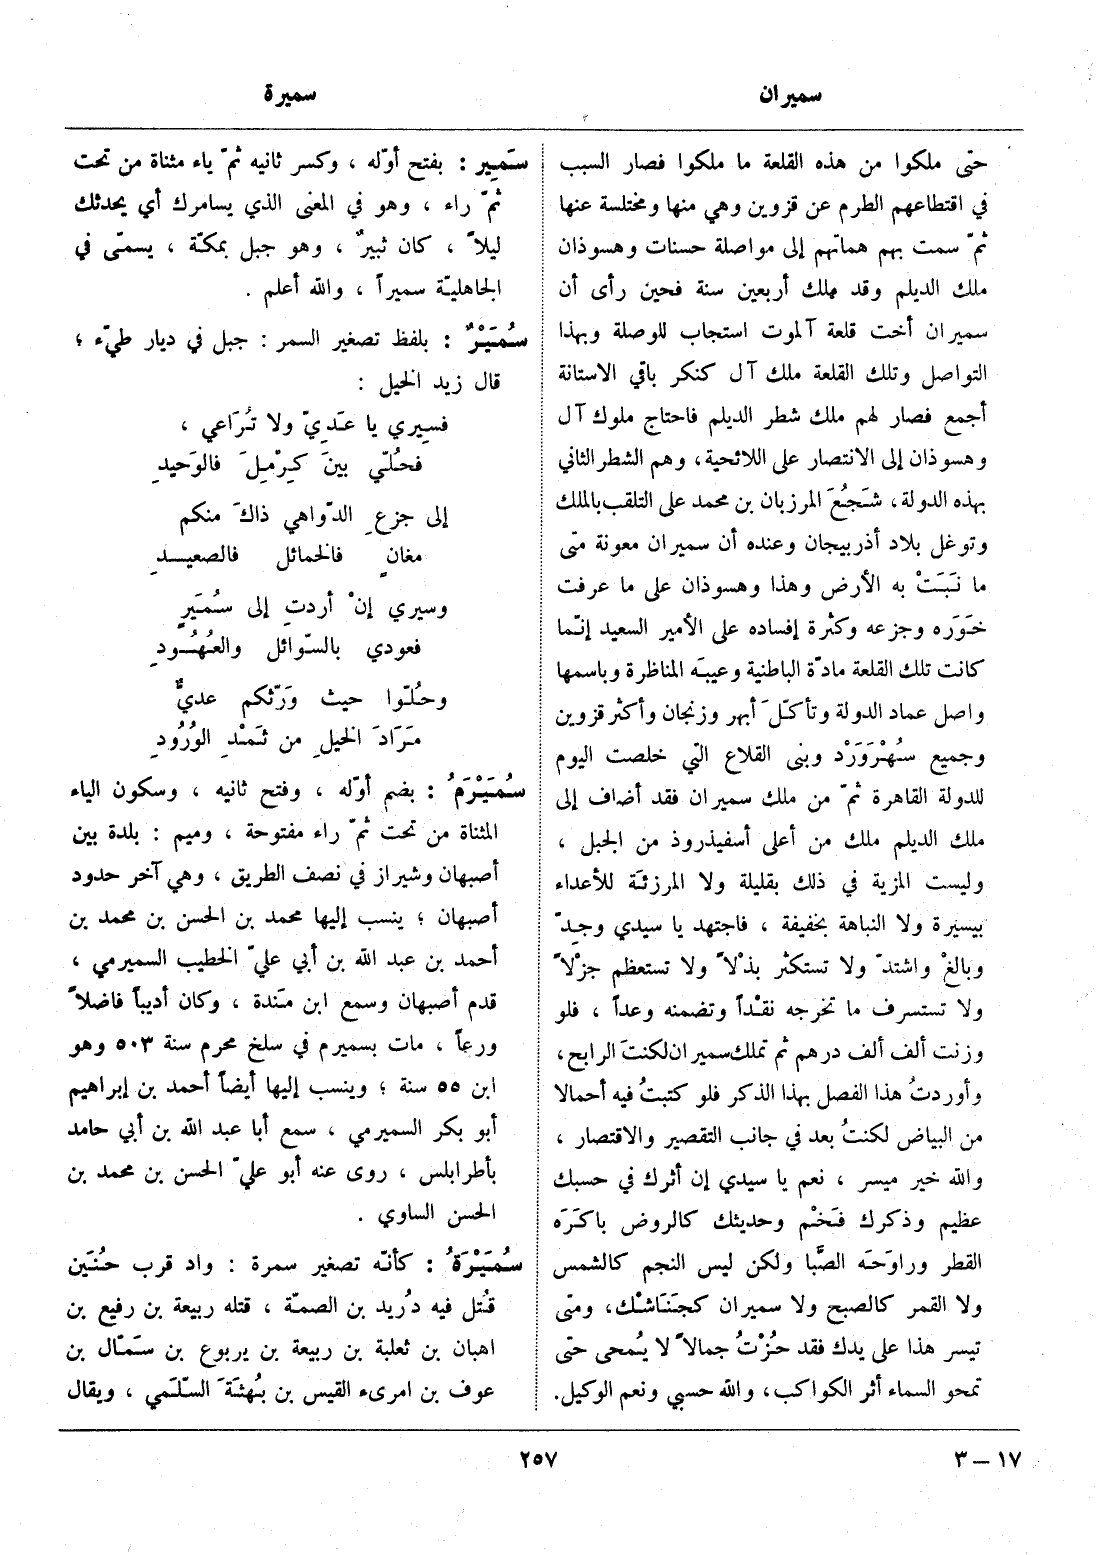 سميران
سميرة
حتى ملكوا من هذه القلعة ما ملكوا فصار السبب
في اقتطاعهم الطرم عن قزوين وهي منها ومختلسة عنها
ثمّ سمت بهم هماتهم إلى مواصلة حسنات وهسوذان
ملك الديلم وقد ملك أربعين سنة فحين رأى أن
سميران أخت قلعة آلموت استجاب للوصلة وبهذا
التواصل وتلك القلعة ملك آل كنكر باقي الاستانة
أجمع فصار لهم ملك شطر الديلم فاحتاج ملوك آل
وهسوذان إلى الانتصار على اللائحية، وهم الشطر الثاني
بهذه الدولة، شَجُعَ المرزبان بن محمد على التلقب بالملك
وتوغل بلاد أذربيجان وعنده أن سميران معونة متى
ما نَبَتْ به الأرض وهذا وهسوذان على ما عرفت
خَوَره وجزعه وكثرة إفساده على الأمير السعيد إنّما
كانت تلك القلعة مادّة الباطنية وعيبَه المناظرة وباسمها
واصل عماد الدولة وتأكّلَ أبهر وزنجان وأكثر قزوين
وجميع سُهْرَوَرْد وبنى القلاع التي خلصت اليوم
للدولة القاهرة ثمّ من ملك سميران فقد أضاف إلى
ملك الديلم ملك من أعلى أسفيذروذ من الجبل ،
وليست المزية في ذلك بقليلة ولا المرزئة للأعداء
بيسيرة ولا النباهة بخفيفة ، فاجتهد يا سيدي وجِدّ
وبالغْ واشتدّ ولا تستكثر بذْلاً ولا تستعظم جزْلاً
ولا تستسرف ما تخرجه نقْداً وتضمنه وعداً ، فلو
وزنت ألف ألف درهم ثم تملك سميران لكنتَ الرابح،
وأوردتُ هذا الفصل بهذا الذكر فلو كتبتُ فيه أحمالا
من البياض لكنتُ بعد في جانب التقصير والاقتصار ،
والله خير ميسر ، نعم يا سيدي إن أثرك في حسبك
عظيم وذكرك فَخْم وحديثك كالروض باكَرَه
القطر وراوَحَه الصَّبا ولكن ليس النجم كالشمس
ولا القمر كالصبح ولا سميران كجَنَاشْك، ومتى
تيسر هذا على يدك فقد حُزْتُ جمالاً لا يُمحى حتى
تمحو السماء أثر الكواكب، والله حسبي ونعم الوكيل.
سَمِير : بفتح أوّله ، وكسر ثانيه ثمّ ياء مثناة من تحت
ثمّ راء ، وهو في المعنى الذي يسامرك أي يحدثك
ليلاً ، كان ثبيرٌ ، وهو جبل بمكّة ، يسمّى في
الجاهليّة سميراً ، والله أعلم .
سُمَيْرٌ : بلفظ تصغير السمر : جبل في ديار طيّء ؛
قال زيد الخيل :
فسِيري يا عَدِيّ ولا تُرَاعي ،
فحُلّي بينَ كِرْمِلَ فالوَحيدِ
إلى جزعِ الدّواهي ذاكَ منكم
مغانٍ فالخمائل فالصعيدِ
وسيري إنْ أردتِ إلى سُمَيرٍ
فعودي بالسّوائل والعُهُودِ
وحُلّوا حيث وَرّثكم عديٌّ
مَرَادَ الخيلِ من ثَمْدِ الوُرُودِ
سُمَيْرَمُ : بضم أوّله ، وفتح ثانيه ، وسكون الياء
المثناة من تحت ثمّ راء مفتوحة ، وميم : بلدة بين
أصبهان وشيراز في نصف الطريق ، وهي آخر حدود
أصبهان ؛ ينسب إليها محمد بن الحسن بن محمد بن
أحمد بن عبد الله بن أبي عليّ الخطيب السميرمي ،
قدم أصبهان وسمع ابن مَندة ، وكان أديباً فاضلاً
ورعاً ، مات بسميرم في سلخ محرم سنة ٥٠٣ وهو
ابن ٥٥ سنة ؛ وينسب إليها أيضاً أحمد بن إبراهيم
أبو بكر السميرمي ، سمع أبا عبد الله بن أبي حامد
بأطرابلس ، روى عنه أبو عليّ الحسن بن محمد بن
الحسن الساوي .
سُمَيْرَةُ : كأنّه تصغير سمرة : واد قرب حُنَين
قُتل فيه دُريد بن الصمّة ، قتله ربيعة بن رفيع بن
اهبان بن ثعلبة بن ربيعة بن يربوع بن سَمّال بن
عوف بن امرىء القيس بن بُهثَةَ السّلَمي ، ويقال
١٧ – ٣
٢٥٧